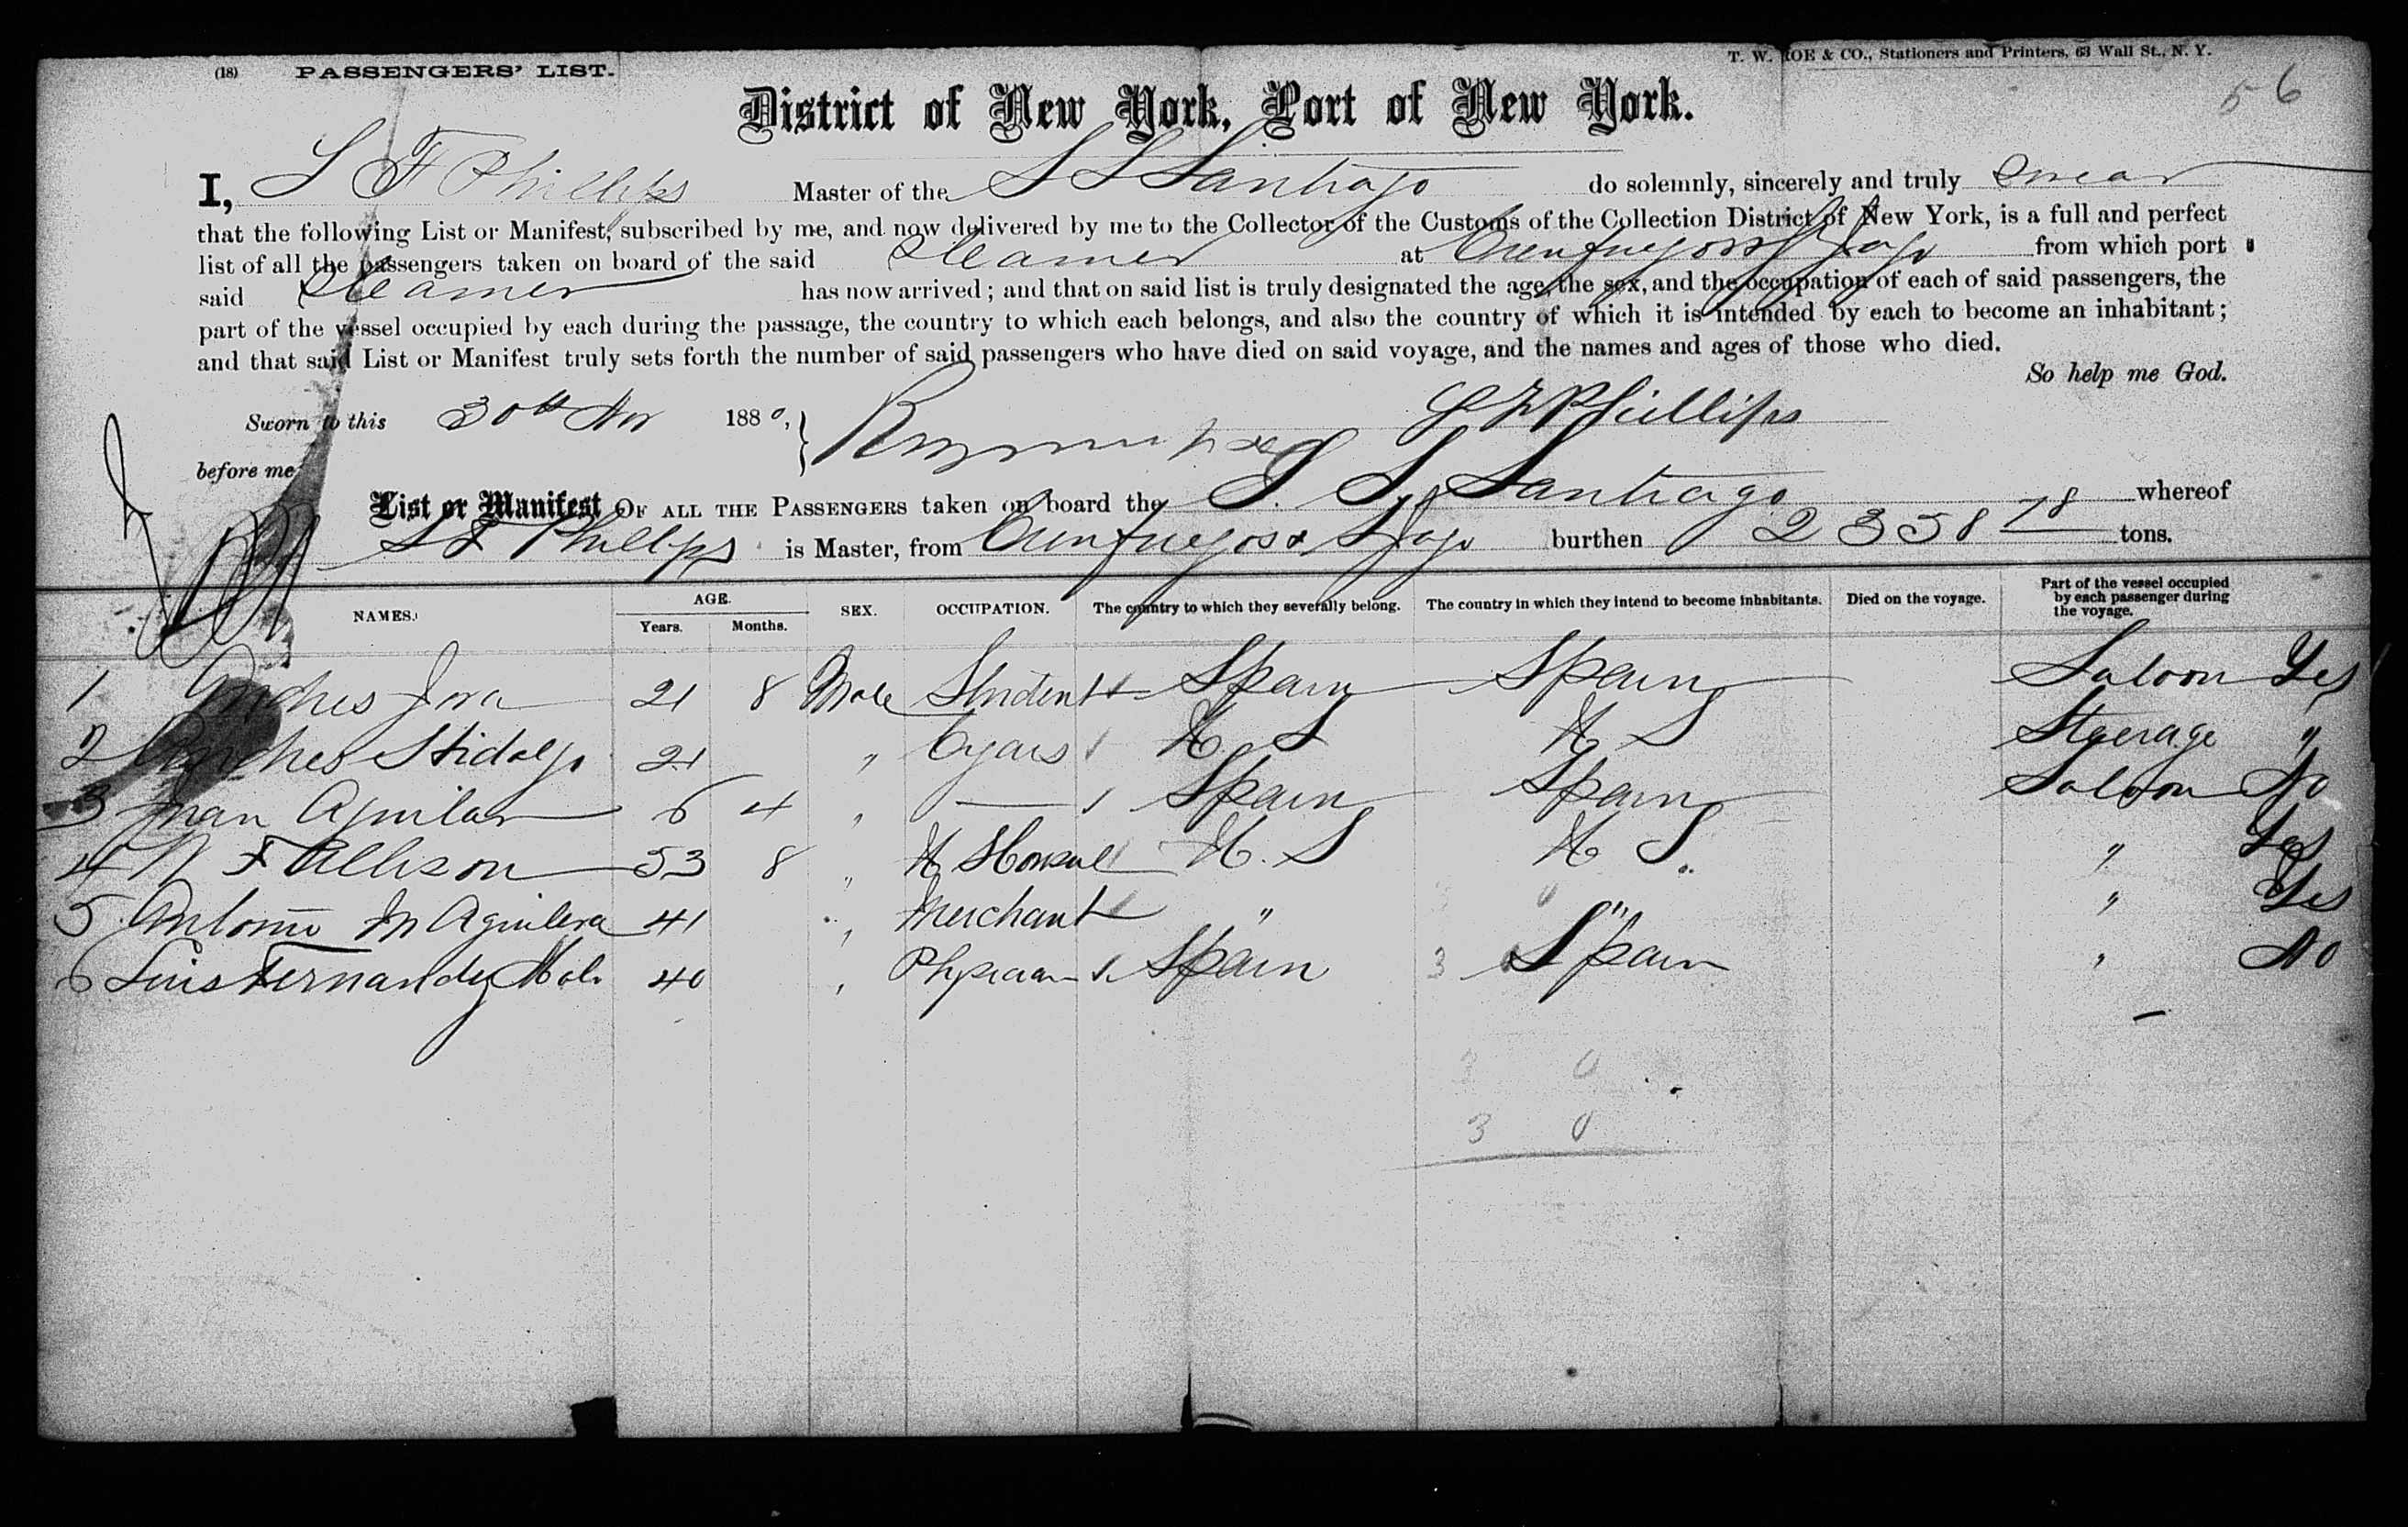 (18) PASSENGERS' LIST.
T. W. ROE & CO., Stationers and Printers, 63 Wall St., N. Y.
56
District of New York, Port of New York.
I, S F Phillips Master of the S S Santiago do solemnly, sincerely and truly swear
that the following List or Manifest, subscribed by me, and now delivered by me to the Collector of the Customs of the Collection District of New York, is a full and perfect
list of all the passengers taken on board of the said Steamer at Cienfuegos & S Jago from which port
said Steamer has now arrived; and that on said list is truly designated the age, the sex, and the occupation of each of said passengers, the
part of the vessel occupied by each during the passage, the country to which each belongs, and also the country of which it is intended by each to become an inhabitant;
and that said List or Manifest truly sets forth the number of said passengers who have died on said voyage, and the names and ages of those who died.
So help me God.
Sworn to this 30th Nov 1880, S F Phillips
before me
List or Manifest OF ALL THE PASSENGERS taken on board the S. S. Santiago whereof
S F Phillips is Master, from Cienfuegos & S Jago burthen 2358 78 tons.
NAMES. AGE. Years. Months. SEX. OCCUPATION. The country to which they severally belong. The country in which they intend to become inhabitants. Died on the voyage. Part of the vessel occupied by each passenger during the voyage.
1 Andres 21 8 Male Student Spain Spain Saloon Yes
2 Hidalgo 21 " Cigars U S U S Steerage "
3 Juan Aguilar 6 4 " — Spain Spain Saloon No
4 N F Allison 53 8 " U S Consul U. S U S. " Yes
5 Antonio M Aguilera 41 " Merchant " " " Yes
6 Luis Fernandez 40 " Physician Spain 3 Spain " No
3 0
3 0